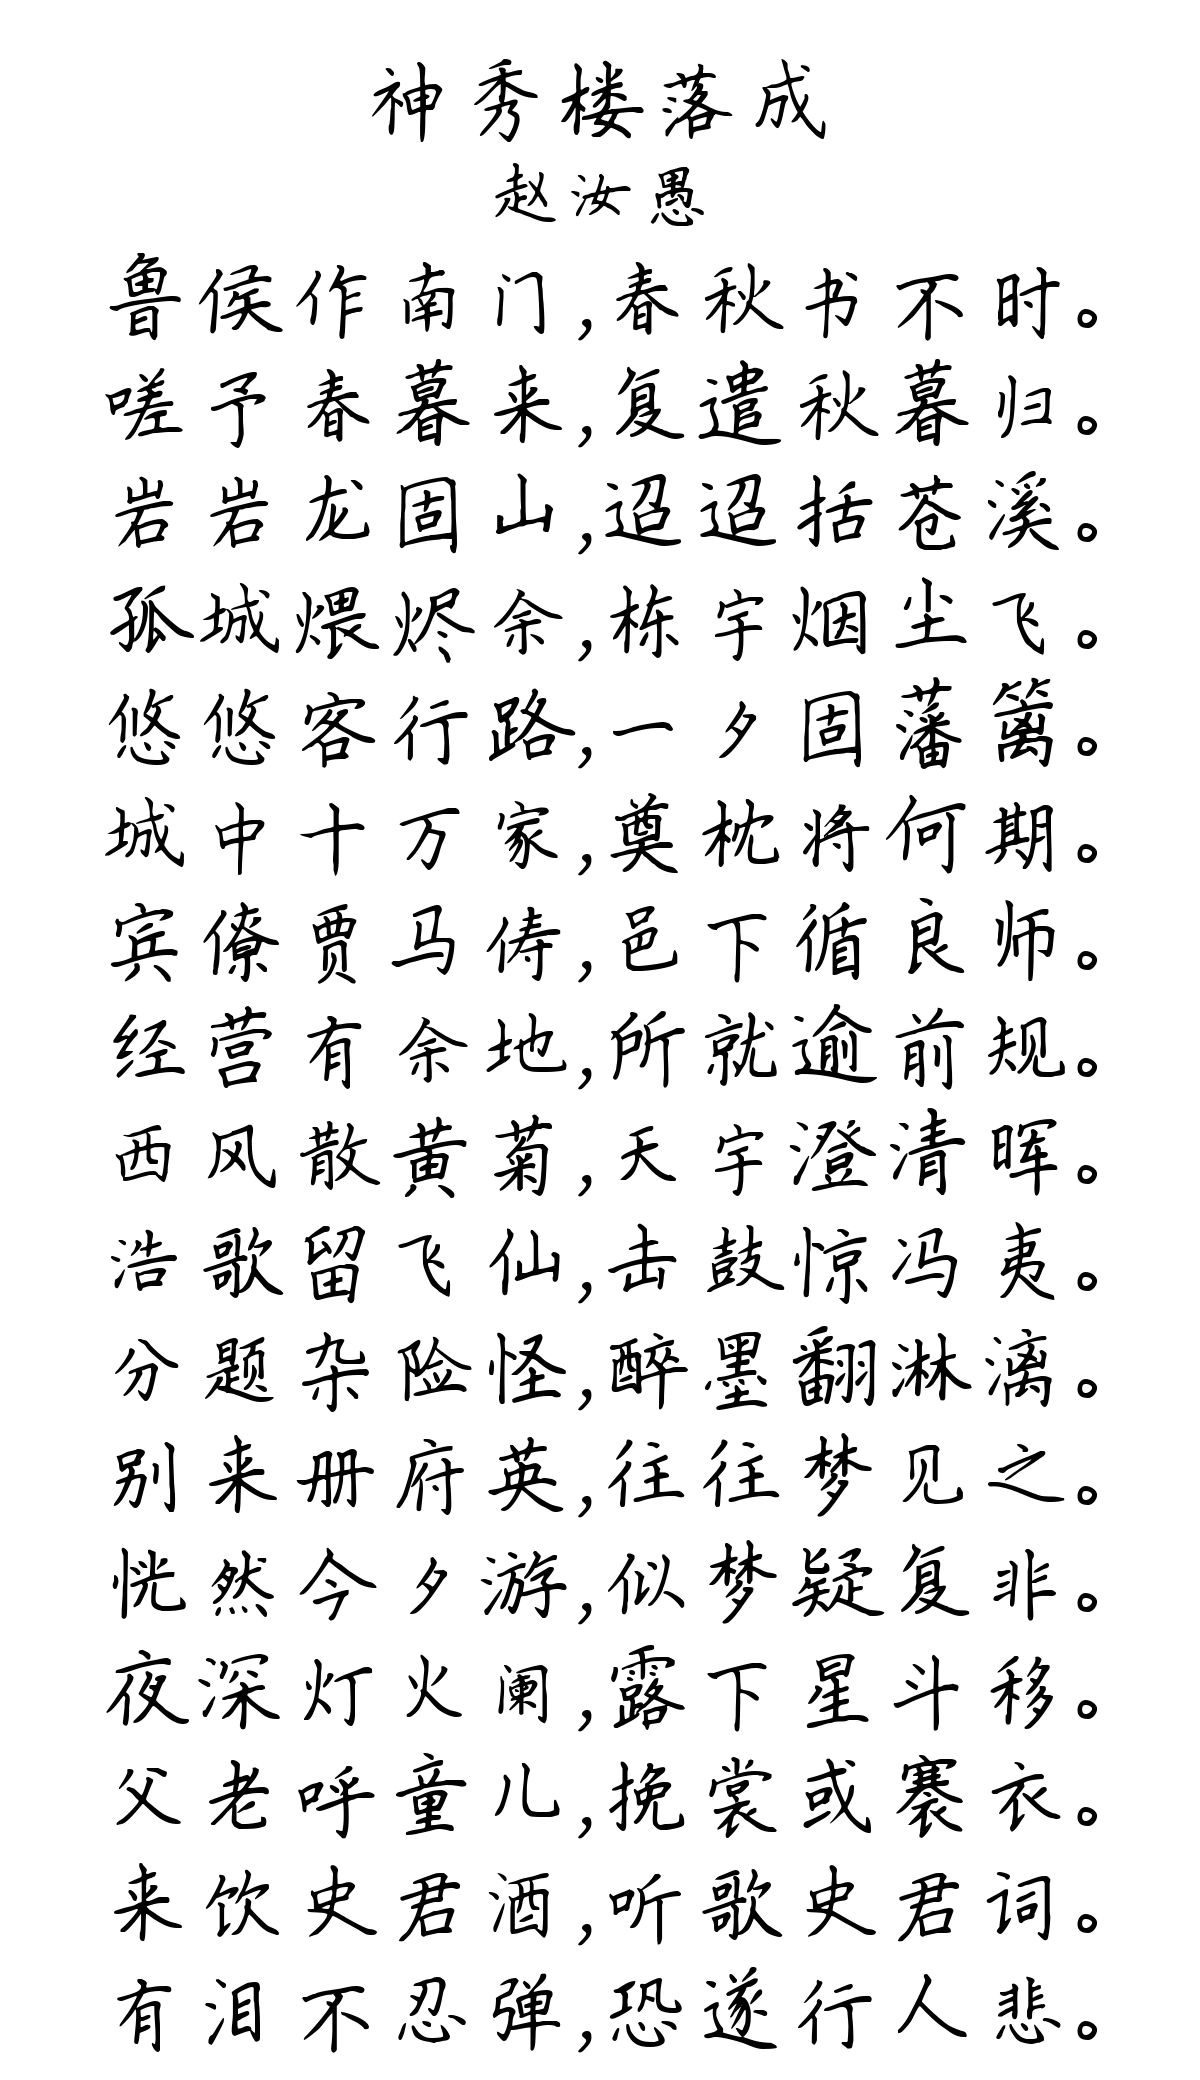 神秀楼落成
赵汝愚
鲁侯作南门,春秋书不时。
嗟予春暮来,复遣秋暮归。
岩岩龙固山,迢迢括苍溪。
孤城煨烬余,栋宇烟尘飞。
悠悠客行路,一夕固藩篱。
城中十万家,奠枕将何期。
宾僚贾马俦,邑下循良师。
经营有余地,所就逾前规。
西风散黄菊,天宇澄清晖。
浩歌留飞仙,击鼓惊冯夷。
分题杂险怪,醉墨翻淋漓。
别来册府英,往往梦见之。
恍然今夕游,似梦疑复非。
夜深灯火阑,露下星斗移。
父老呼童儿,挽裳或褰衣。
来饮史君酒,听歌史君词。
有泪不忍弹,恐遂行人悲。